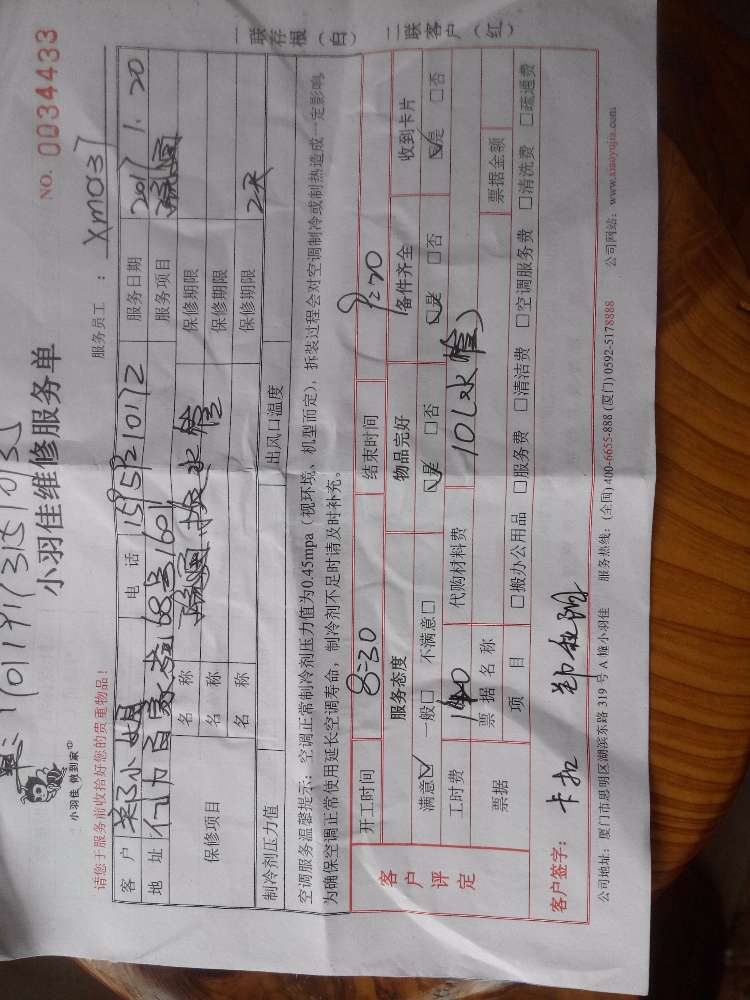 小羽佳 做到家
小羽佳维修服务单
NO. 0034433
请您于服务前收拾好您的贵重物品!
服务员工 : Xm037
客户 电话 服务日期 2017 1. 20
地址 服务项目 疏通
保修项目 名称 保修期限
名称 保修期限
名称 保修期限
制冷剂压力值 出风口温度
空调服务温馨提示:空调正常制冷剂压力值为0.45mpa(视环境、机型而定),拆装过程会对空调制冷或制热造成一定影响,
为确保空调正常使用延长空调寿命,制冷剂不足时请及时补充。
客户评定
开工时间 8:30 结束时间
服务态度 物品完好 备件齐全 收到卡片
满意☑ 一般□ 不满意□ ☑是 □否 ☑是 □否 ☑是 □否
工时费 代购材料费 10(水管)
票据 票据名称 票据金额
项目 □搬办公用品 □服务费 □清洁费 □空调服务费 □清洗费 □疏通费
客户签字: 卡扣
公司地址:厦门市思明区湖滨东路 319 号 A 幢小羽佳 服务热线:(全国)400-6655-888 (厦门) 0592-5178888 公司网站:www.xiaoyujia.com
一联存根(白) 二联客户(红)